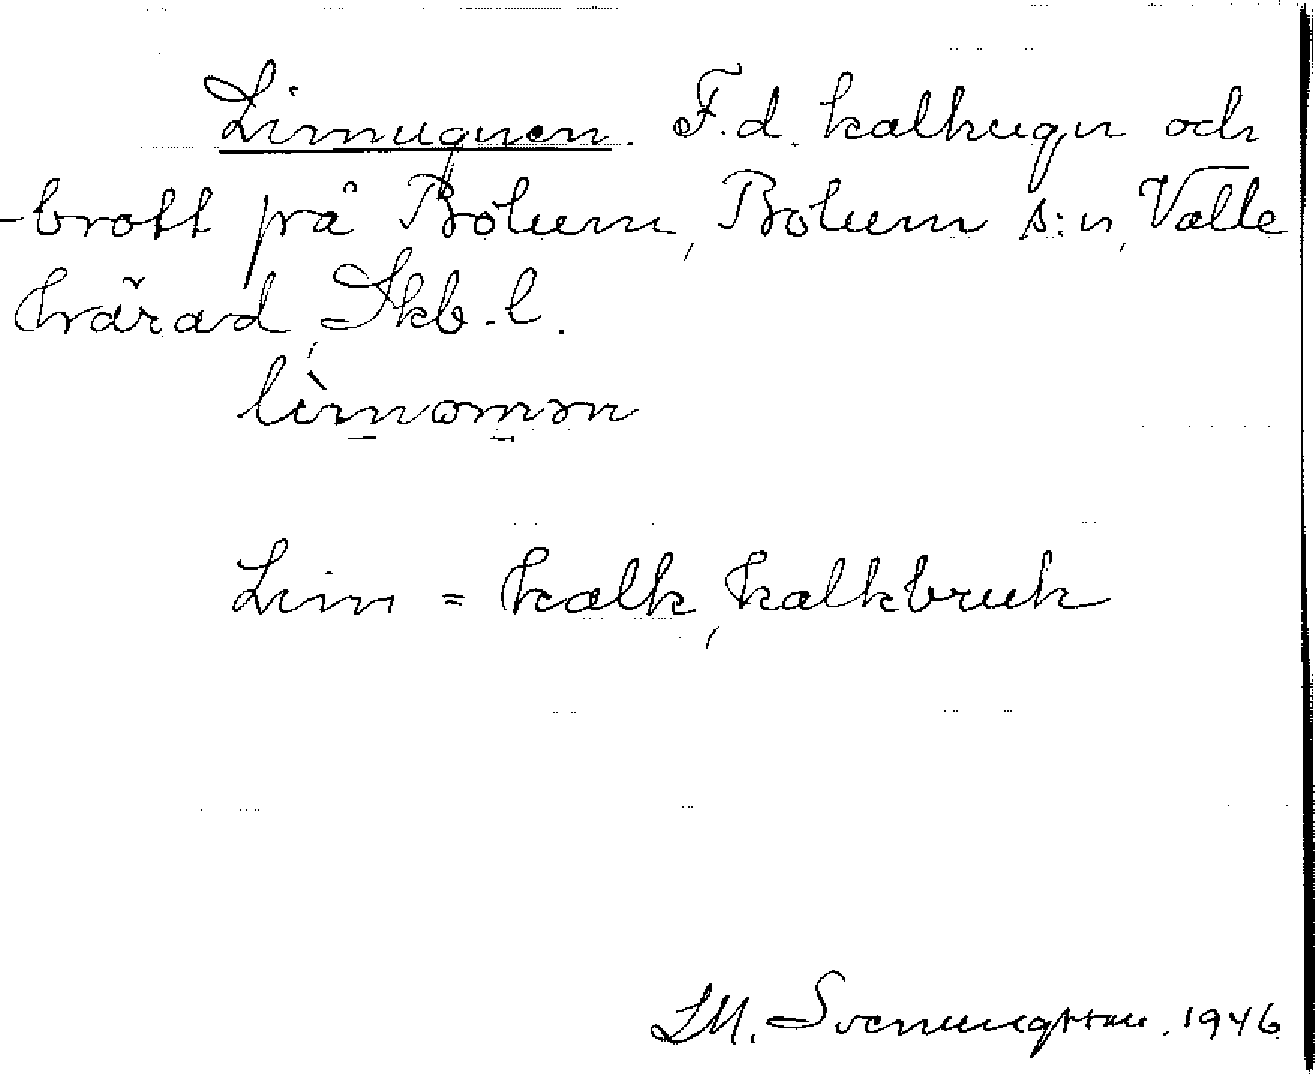 Limugnen. F.d. kalkugn och
-brott på Bolum, Bolum s:n, Valle
härad, Skb. l.
Lim = kalk, kalkbruk
SM. Svenungsson. 1946